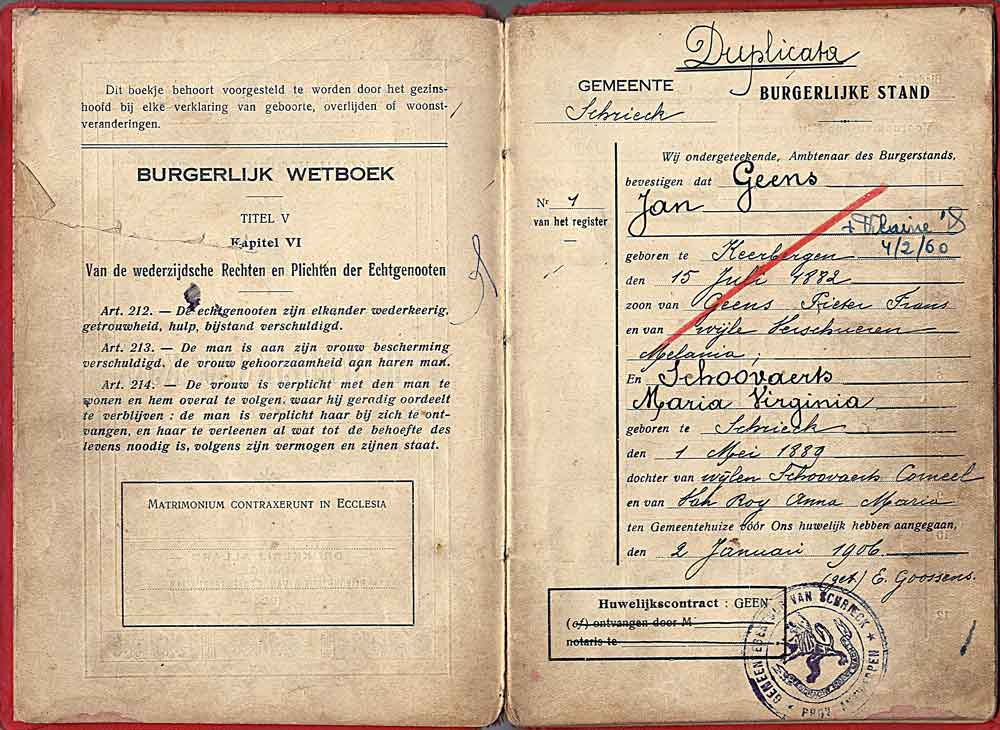 Dit boekje behoort voorgesteld te worden door het gezins-
hoofd bij elke verklaring van geboorte, overlijden of woonst-
veranderingen.
BURGERLIJK WETBOEK
TITEL V
Kapitel VI
Van de wederzijdsche Rechten en Plichten der Echtgenooten
Art. 212. — De echtgenooten zijn elkander wederkeerig,
getrouwheid, hulp, bijstand verschuldigd.
Art. 213. — De man is aan zijn vrouw bescherming
verschuldigd, de vrouw gehoorzaamheid aan haren man.
Art. 214. — De vrouw is verplicht met den man te
wonen en hem overal te volgen, waar hij geradig oordeelt
te verblijven : de man is verplicht haar bij zich te ont-
vangen, en haar te verleenen al wat tot de behoefte des
levens noodig is, volgens zijn vermogen en zijnen staat.
MATRIMONIUM CONTRAXERUNT IN ECCLESIA
Duplicata
GEMEENTE
Schrieck
BURGERLIJKE STAND
Nr 1
van het register
Wij ondergeteekende, Ambtenaar des Burgerstands,
bevestigen dat Geens
Jan
4/2/60
geboren te Keerbergen
den 15 Juli 1882
zoon van Geens Pieter Frans
en van wijle Verschueren
Melania,
En Schoovaerts
Maria Virginia
geboren te Schrieck
den 1 Mei 1889
dochter van wijlen Schoovaerts Corneel
en van Van Roy Anna Maria
ten Gemeentehuize vóór Ons huwelijk hebben aangegaan,
den 2 Januari 1906
(get) E. Goossens.
Huwelijkscontract : GEEN
(of) ontvangen door M
notaris te
GEMEENTEBESTUUR VAN SCHRIECK
PROV. ANTWERPEN